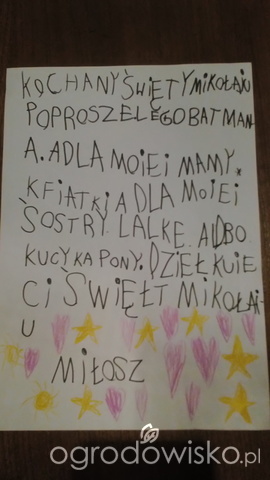 KOCHANY ŚWIĘTY MIKOŁAJU
POPROSZE LEGO BATMAN
A. A DLA MOIEI MAMY.
KFIATKI A DLA MOIEI
SOSTRY. LALKE. ALDBO
KUCYKA PONY. DZIEŁKUIE
CI ŚWIĘŁT MIKOŁAI
U
MIŁOSZ
ogrodowisko.pl